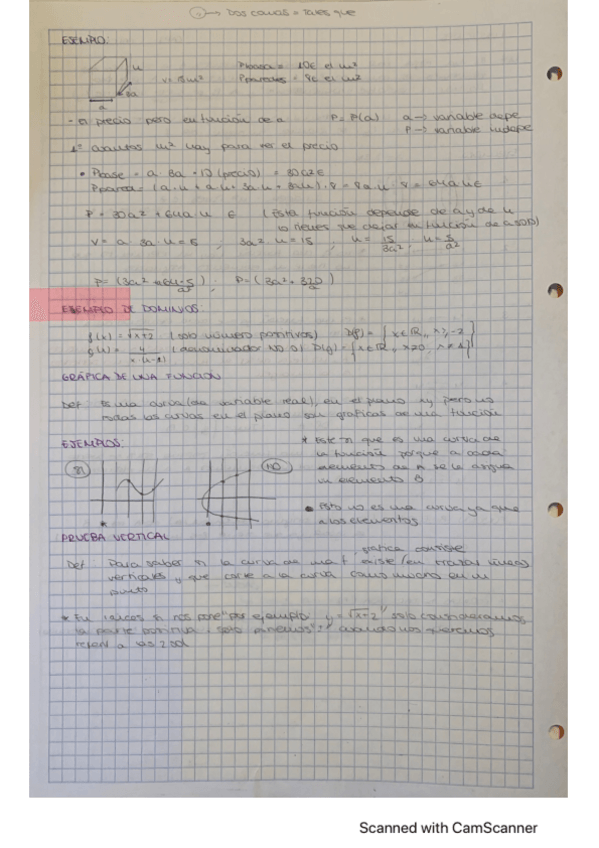 → Dos comas = Tales que
EJEMPLO:
Pbase = 10€ el m²
V = 15 m³ Pparedes = 8€ el m²
- El precio pero en función de a P = P(a) a → variable depe
P → variable indepe
1º cuantos m² hay para ver el precio
• Pbase = a · 3a · 10 (precio) = 30a²€
= (a·h + a·h + 3a·h + 3a·h) · 8 = 8a·h · 8 = 64a h €
P = 30a² + 64a h € (Esta función depende de a y de h
lo tienes que dejar en función de a SOLO)
V = a · 3a · h = 15 , 3a² · h = 15 , h = 15/3a² , h = 5/a²
EJEMPLO DE DOMINIOS
f(x) = √x+2 (solo número positivos) D(f) = { x ∈ R, x ≥ -2 }
(denominador NO 0) D(g) = { x ∈ R, x ≠ 0, x ≠ 1 }
GRÁFICA DE UNA FUNCIÓN
Def: Es una curva (de variable real), en el plano xy, pero no
todas las curvas en el plano son gráficas de una función
EJEMPLOS:
SI NO
* Este si que es una curva de
la función porque a cada
elemento de A se le asigna
un elemento B
• Esto no es una curva ya que
a los elementos
PRUEBA VERTICAL
gráfica consiste
Def: Para saber si la curva de una f existe (en trazar líneas)
verticales y que corte a la curva como mucho en un
punto
si nos pone "por ejemplo y = √x+2" solo consideramos
la parte positiva, solo ponemos "±" cuando nos queremos
a las 2 sol
Scanned with CamScanner